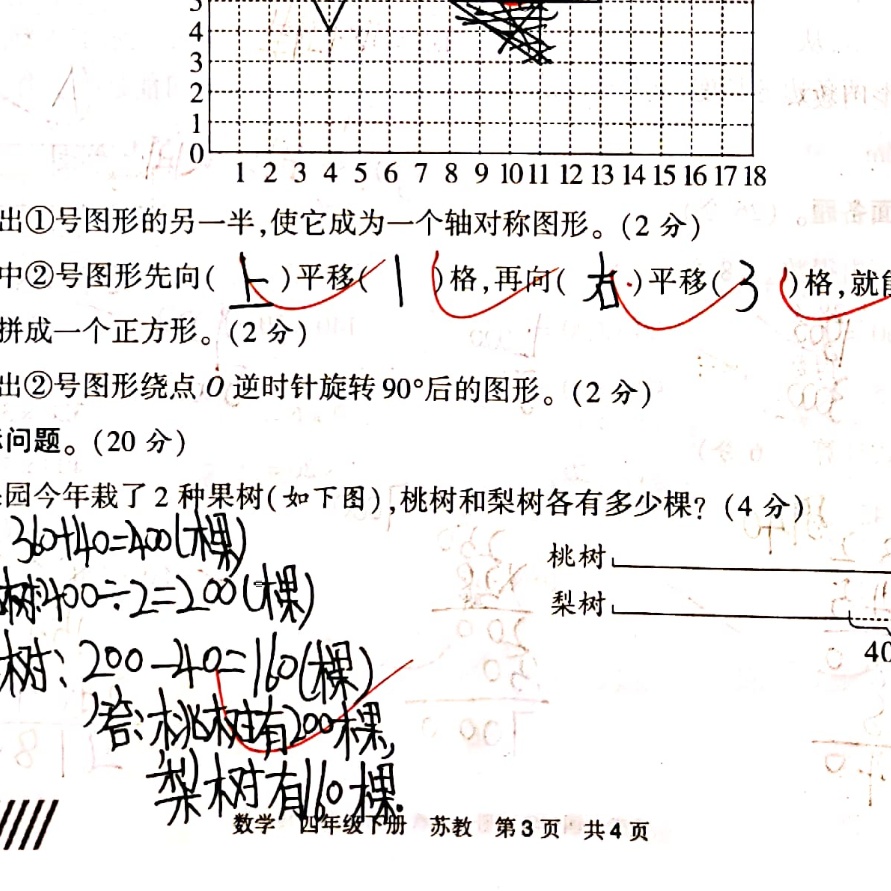 5
4
3
2
1
0
1 2 3 4 5 6 7 8 9 10 11 12 13 14 15 16 17 18
出①号图形的另一半,使它成为一个轴对称图形。(2分)
中②号图形先向( 上 )平移( 1 )格,再向( 右 )平移( 3 )格,就能
拼成一个正方形。(2分)
出②号图形绕点O逆时针旋转90°后的图形。(2分)
问题。(20分)
园今年栽了2种果树(如下图),桃树和梨树各有多少棵?(4分)
360+40=400(棵)
桃树
树:400÷2=200(棵)
梨树
40
树:200-40=160(棵)
答:桃树有200棵,
梨树有160棵.
数学 四年级下册 苏教 第3页 共4页